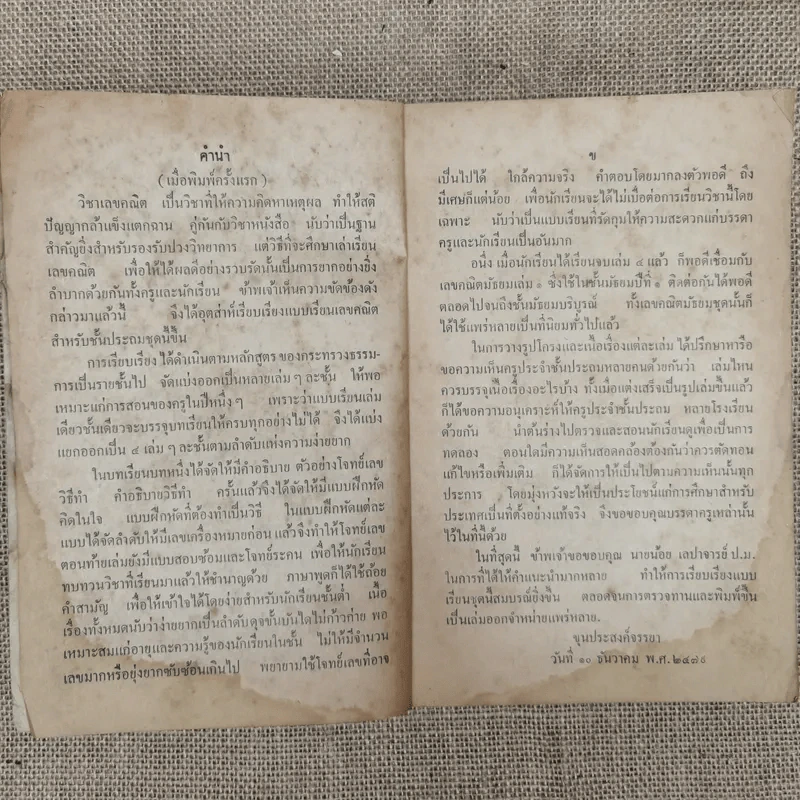 คำนำ
(เมื่อพิมพ์ครั้งแรก)
วิชาเลขคณิต เป็นวิชาที่ให้ความคิดหาเหตุผล ทำให้สติ
ปัญญากล้าแข็งแตกฉาน คู่กันกับวิชาหนังสือ นับว่าเป็นฐาน
สำคัญยิ่งสำหรับรองรับปวงวิทยาการ แต่วิธีที่จะศึกษาเล่าเรียน
เลขคณิต เพื่อให้ได้ผลดีอย่างรวบรัดนั้นเป็นการยากอย่างยิ่ง
ลำบากด้วยกันทั้งครูและนักเรียน ข้าพเจ้าเห็นความขัดข้องดัง
กล่าวมาแล้วนี้ จึงได้อุตส่าห์เรียบเรียงแบบเรียนเลขคณิต
สำหรับชั้นประถมชุดนี้ขึ้น
การเรียบเรียง ได้ดำเนินตามหลักสูตร ของกระทรวงธรรม-
การเป็นรายชั้นไป จัดแบ่งออกเป็นหลายเล่ม ๆ ละชั้น ให้พอ
เหมาะแก่การสอนของครูในปีหนึ่ง ๆ เพราะว่าแบบเรียนเล่ม
เดียวชั้นเดียวจะบรรจุบทเรียนให้ครบทุกอย่างไม่ได้ จึงได้แบ่ง
แยกออกเป็น ๔ เล่ม ๆ ละชั้นตามลำดับแห่งความง่ายยาก
ในบทเรียนบทหนึ่งได้จัดให้มีคำอธิบาย ตัวอย่างโจทย์เลข
วิธีทำ คำอธิบายวิธีทำ ครั้นแล้วจึงได้จัดให้มีแบบฝึกหัด
คิดในใจ แบบฝึกหัดที่ต้องทำเป็นวิธี ในแบบฝึกหัดแต่ละ
แบบได้จัดลำดับให้มีเลขเครื่องหมายก่อน แล้วจึงทำให้โจทย์เลข
ตอนท้ายเล่มยังมีแบบสอบซ้อมและโจทย์ระคน เพื่อให้นักเรียน
ทบทวนวิชาที่เรียนมาแล้วให้ชำนาญด้วย ภาษาพูดก็ได้ใช้ถ้อย
คำสามัญ เพื่อให้เข้าใจได้โดยง่ายสำหรับนักเรียนชั้นต่ำ เนื้อ
เรื่องทั้งหมดนับว่าง่ายยากเป็นลำดับดุจขั้นบันไดไม่ก้าวก่าย พอ
เหมาะสมแก่อายุและความรู้ของนักเรียนในชั้น ไม่ให้มีจำนวน
เลขมากหรือยุ่งยากซับซ้อนเกินไป พยายามใช้โจทย์เลขที่อาจ
ข
เป็นไปได้ ใกล้ความจริง คำตอบโดยมากลงตัวพอดี ถึง
มีเศษก็แต่น้อย เพื่อนักเรียนจะได้ไม่เบื่อต่อการเรียนวิชานี้โดย
เฉพาะ นับว่าเป็นแบบเรียนที่รัดกุมให้ความสะดวกแก่บรรดา
ครูและนักเรียนเป็นอันมาก
อนึ่ง เมื่อนักเรียนได้เรียนจบเล่ม ๔ แล้ว ก็พอดีเชื่อมกับ
เลขคณิตมัธยมเล่ม ๑ ซึ่งใช้ในชั้นมัธยมปีที่ ๑ ติดต่อกันได้พอดี
ตลอดไปจนถึงชั้นมัธยมบริบูรณ์ ทั้งเลขคณิตมัธยมชุดนั้นก็
ได้ใช้แพร่หลายเป็นที่นิยมทั่วไปแล้ว
ในการวางรูปโครงและเนื้อเรื่องแต่ละเล่ม ได้ปรึกษาหารือ
ขอความเห็นครูประจำชั้นประถมหลายคนด้วยกันว่า เล่มไหน
ควรบรรจุเนื้อเรื่องอะไรบ้าง ทั้งเมื่อแต่งเสร็จเป็นรูปเล่มขึ้นแล้ว
ก็ได้ขอความอนุเคราะห์ให้ครูประจำชั้นประถม หลายโรงเรียน
ด้วยกัน นำต้นร่างไปตรวจและสอนนักเรียนดูเพื่อเป็นการ
ทดลอง ตอนใดมีความเห็นสอดคล้องต้องกันว่าควรตัดทอน
แก้ไขหรือเพิ่มเติม ก็ได้จัดการให้เป็นไปตามความเห็นนั้นทุก
ประการ โดยมุ่งหวังจะให้เป็นประโยชน์แก่การศึกษาสำหรับ
ประเทศเป็นที่ตั้งอย่างแท้จริง จึงขอขอบคุณบรรดาครูเหล่านั้น
ไว้ในที่นี้ด้วย
ในที่สุดนี้ ข้าพเจ้าขอขอบคุณ นายน้อย เลปาจารย์ ป.ม.
ในการที่ได้ให้คำแนะนำมากหลาย ทำให้การเรียบเรียงแบบ
เรียนชุดนี้สมบูรณ์ยิ่งขึ้น ตลอดจนการตรวจทานและพิมพ์ขึ้น
เป็นเล่มออกจำหน่ายแพร่หลาย.
ขุนประสงค์จรรยา
วันที่ ๑๐ ธันวาคม พ.ศ. ๒๔๗๙